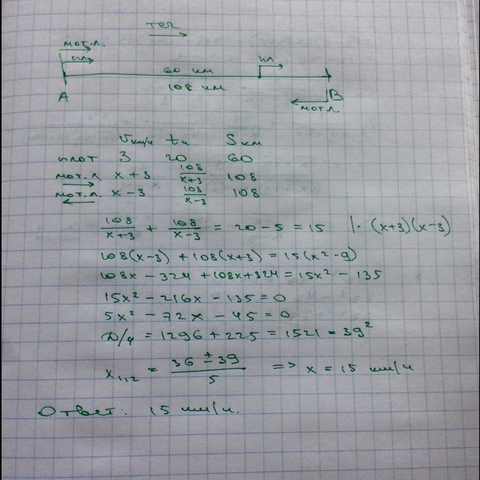 теч
мот.л.
пл
60 км
пл
A
108 км
B
мот.л
V км/ч tч S км
плот 3 20 60
мот.л. x+3 108/x+3 108
мот.л. x-3 108/x-3 108
108/x+3 + 108/x-3 = 20-5 = 15 |· (x+3)(x-3)
108(x-3) + 108(x+3) = 15(x²-9)
108x - 324 + 108x + 324 = 15x² - 135
15x² - 216x - 135 = 0
5x² - 72x - 45 = 0
D/4 = 1296 + 225 = 1521 = 39²
x1,2 = 36 ± 39/5 => x = 15 км/ч
Ответ: 15 км/ч.